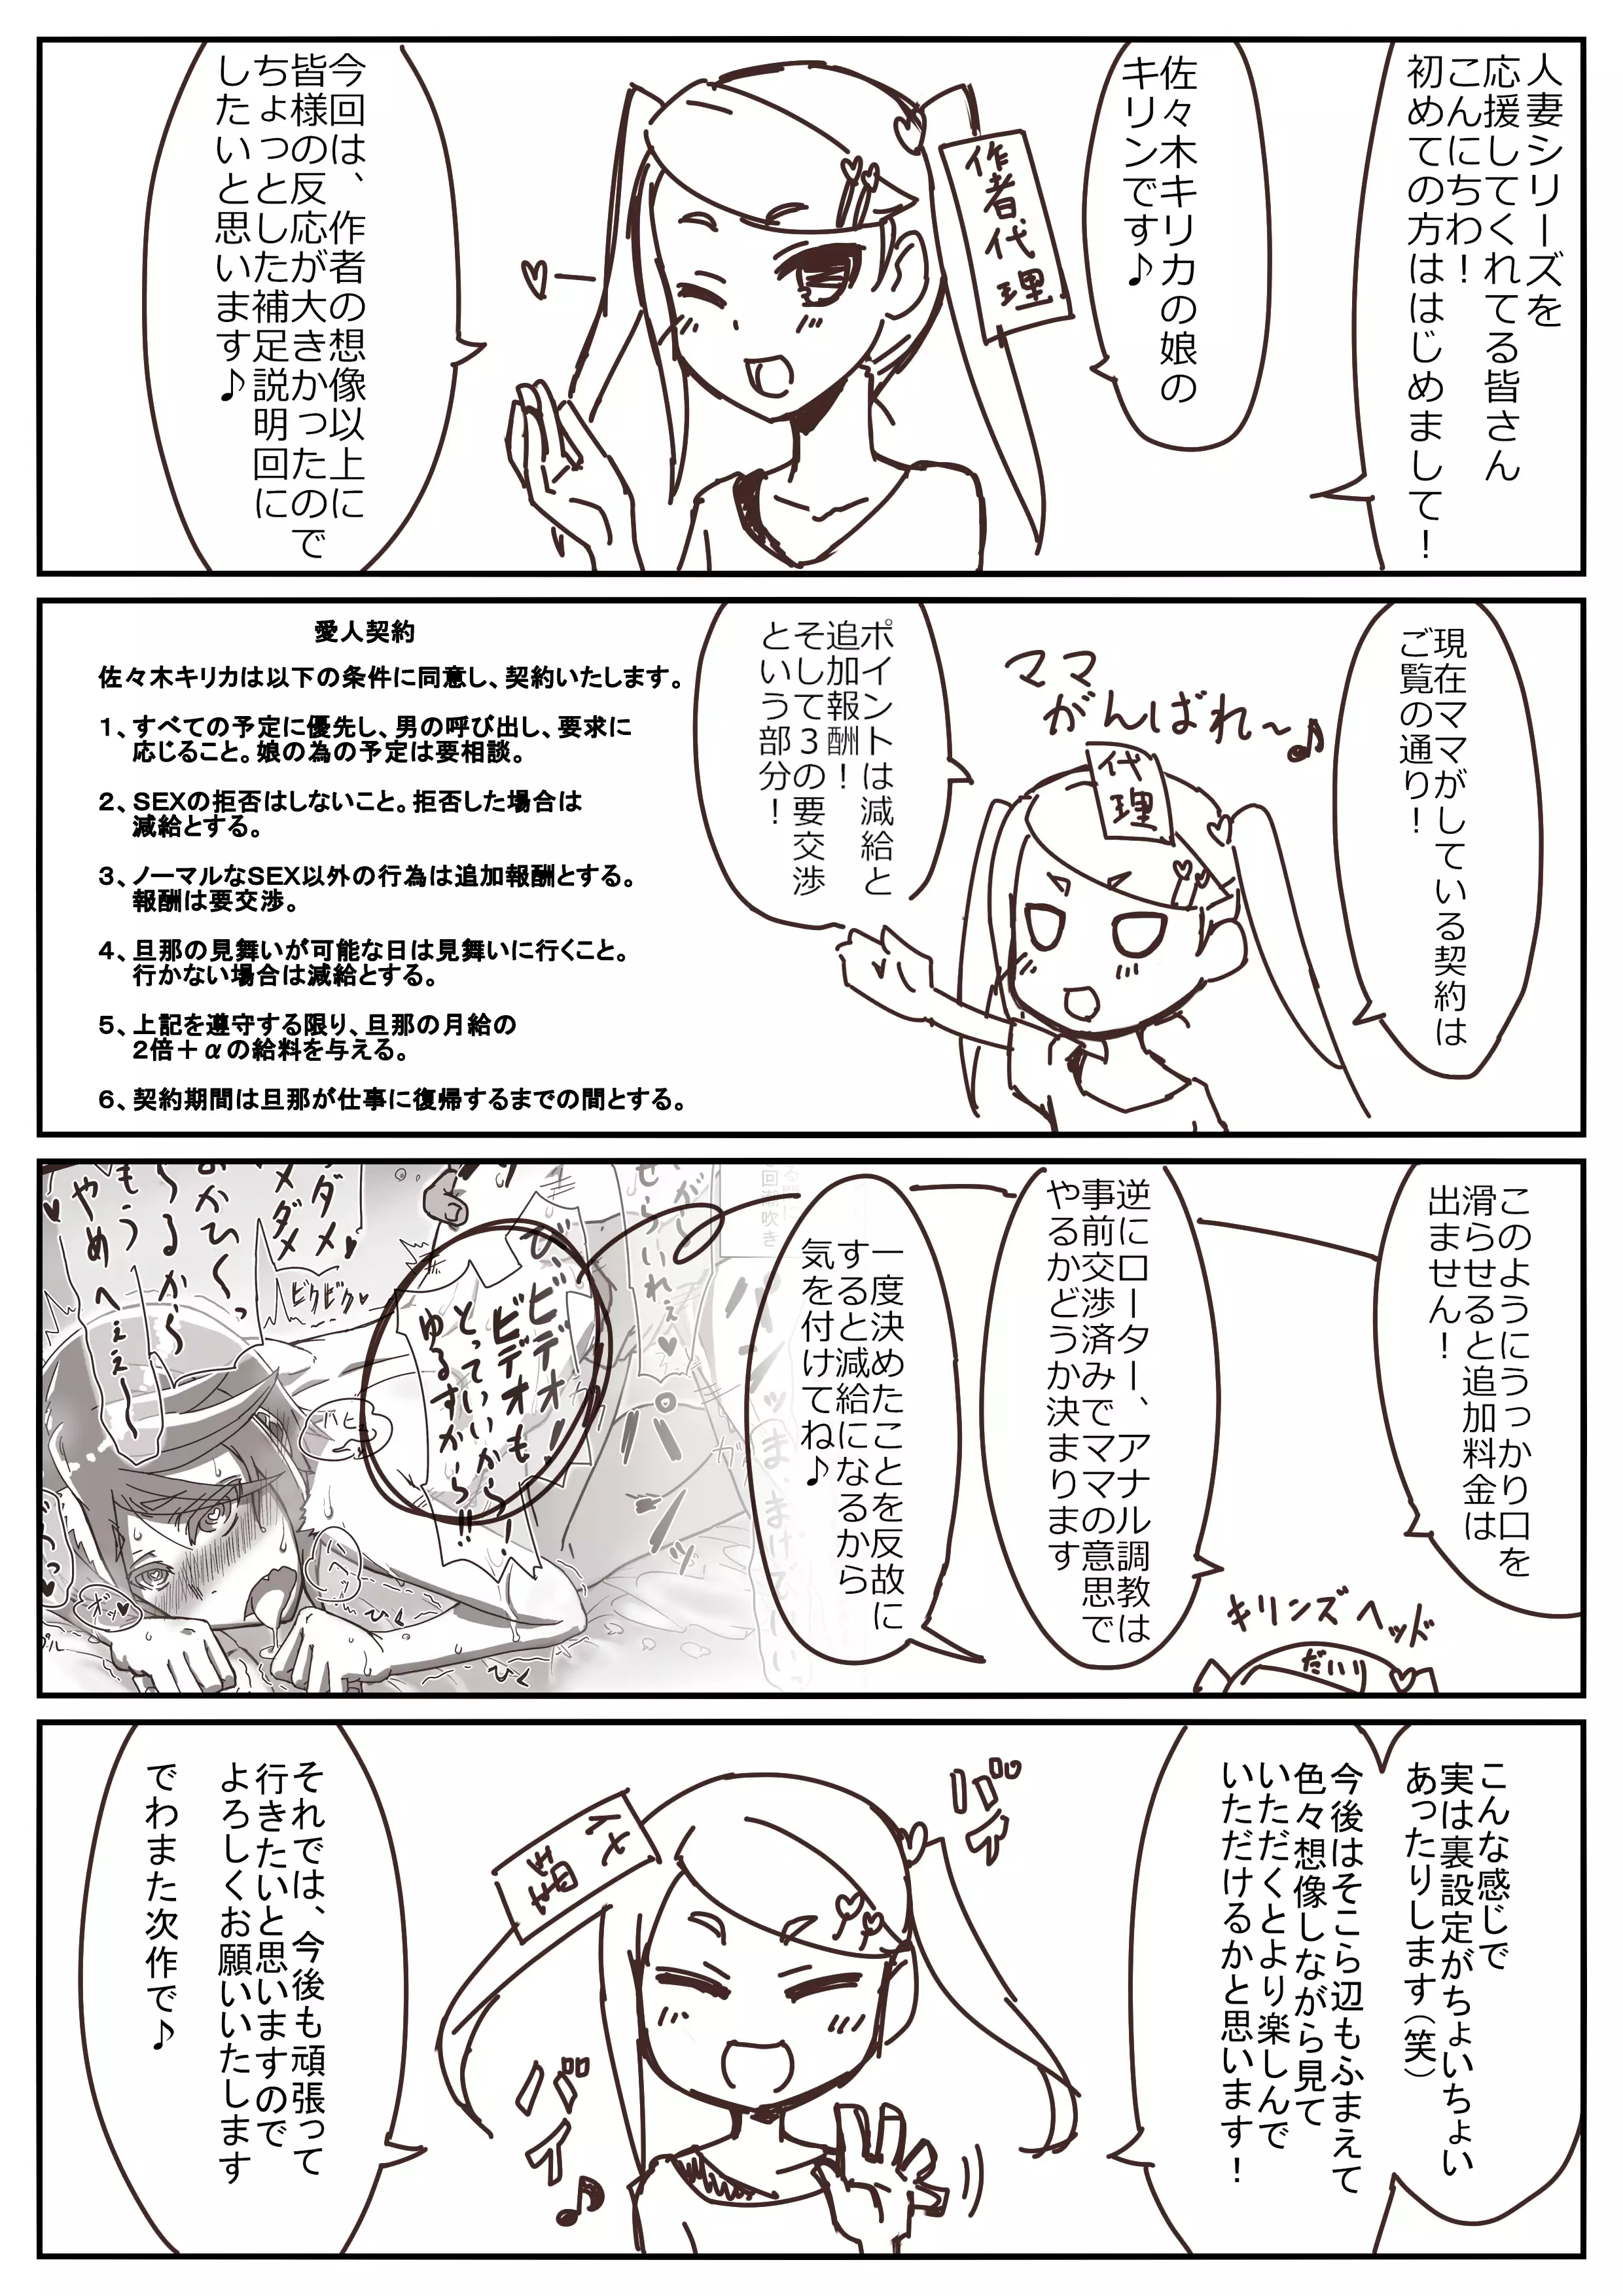 人妻シリーズを
応援してくれてる皆さん
こんにちわ！
初めての方ははじめまして！
佐々木キリカの娘の
キリンです♪
作者代理
今回は、作者の想像以上に
皆様の反応が大きかったので
ちょっとした補足説明回に
したいと思います♪
現在ママがしている契約は
ご覧の通り！
ママ
がんばれ～♪
代理
ポイントは減給と
追加報酬！
そして３の要交渉
という部分！
愛人契約
佐々木キリカは以下の条件に同意し、契約いたします。
１、すべての予定に優先し、男の呼び出し、要求に
応じること。娘の為の予定は要相談。
２、ＳＥＸの拒否はしないこと。拒否した場合は
減給とする。
３、ノーマルなＳＥＸ以外の行為は追加報酬とする。
報酬は要交渉。
４、旦那の見舞いが可能な日は見舞いに行くこと。
行かない場合は減給とする。
５、上記を遵守する限り、旦那の月給の
２倍＋αの給料を与える。
６、契約期間は旦那が仕事に復帰するまでの間とする。
このようにうっかり口を
滑らせると追加料金は
出ません！
キリンズヘッド
だいり
逆にローター、アナル調教は
事前交渉済みでママの意思で
やるかどうか決まります
一度決めたことを反故に
すると減給になるから
気を付けてね♪
び、ビデオ！
ビデオも
とっていいから！
ゆるすから！！
ダメ♥
ダメダメ
ビクビク♥
もうやめへぇぇ～
こんな感じで
実は裏設定がちょいちょい
あったりします（笑）
今後はそこら辺もふまえて
色々想像しながら見て
いただくとより楽しんで
いただけるかと思います！
バイ
バイ♪
それでは、今後も頑張って
行きたいと思いますので
よろしくお願いいたします
でわまた次作で♪